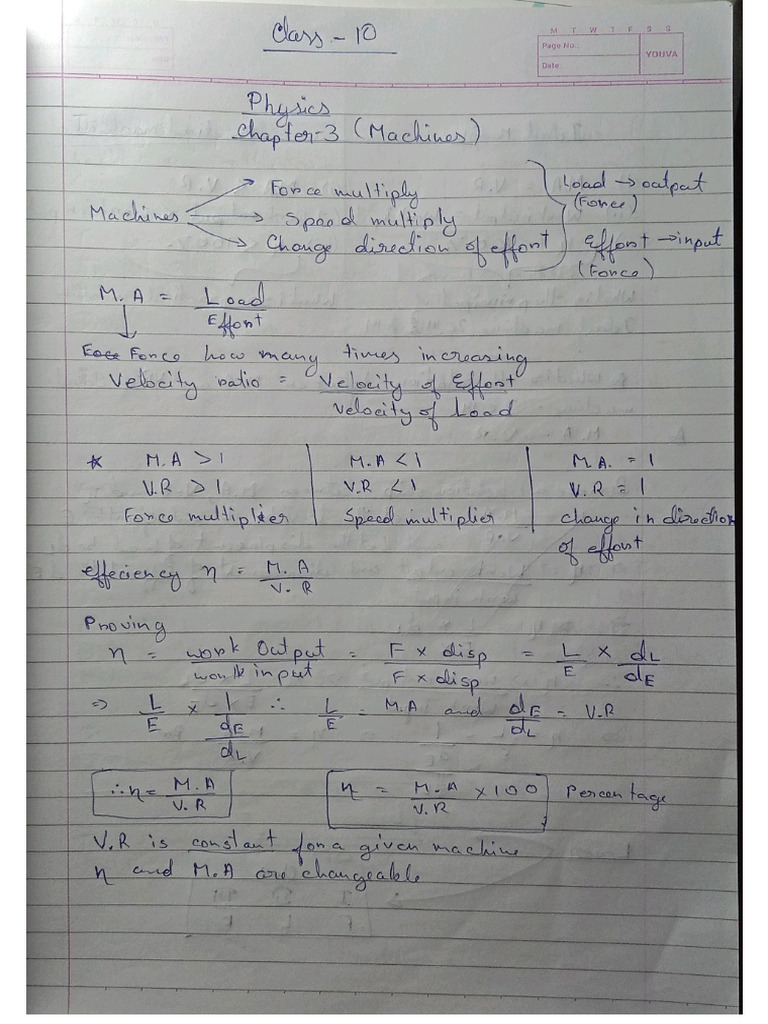 Class - 10
M T W T F S S
Page No.:
Date:
YOUVA
Physics
Chapter-3 (Machines)
Machines → Force multiply
→ Speed multiply
→ Change direction of effort
Load → output
(Force)
Effort → input
(Force)
M.A = Load / Effort
↓
Force how many times increasing
Velocity ratio = Velocity of Effort / Velocity of Load
* M.A > 1 | M.A < 1 | M.A. = 1
V.R > 1 | V.R < 1 | V.R = 1
Force multiplier | Speed multiplier | change in direction of effort
effeciency η = M.A / V.R
Proving
η = work Output / work input = F × disp / F × disp = L/E × dL/dE
⇒ L/E × 1/(dE/dL) ∴ L/E = M.A and dE/dL = V.R
∴ η = M.A / V.R
η = M.A / V.R × 100 Percentage
V.R is constant for a given machine
η and M.A are changeable